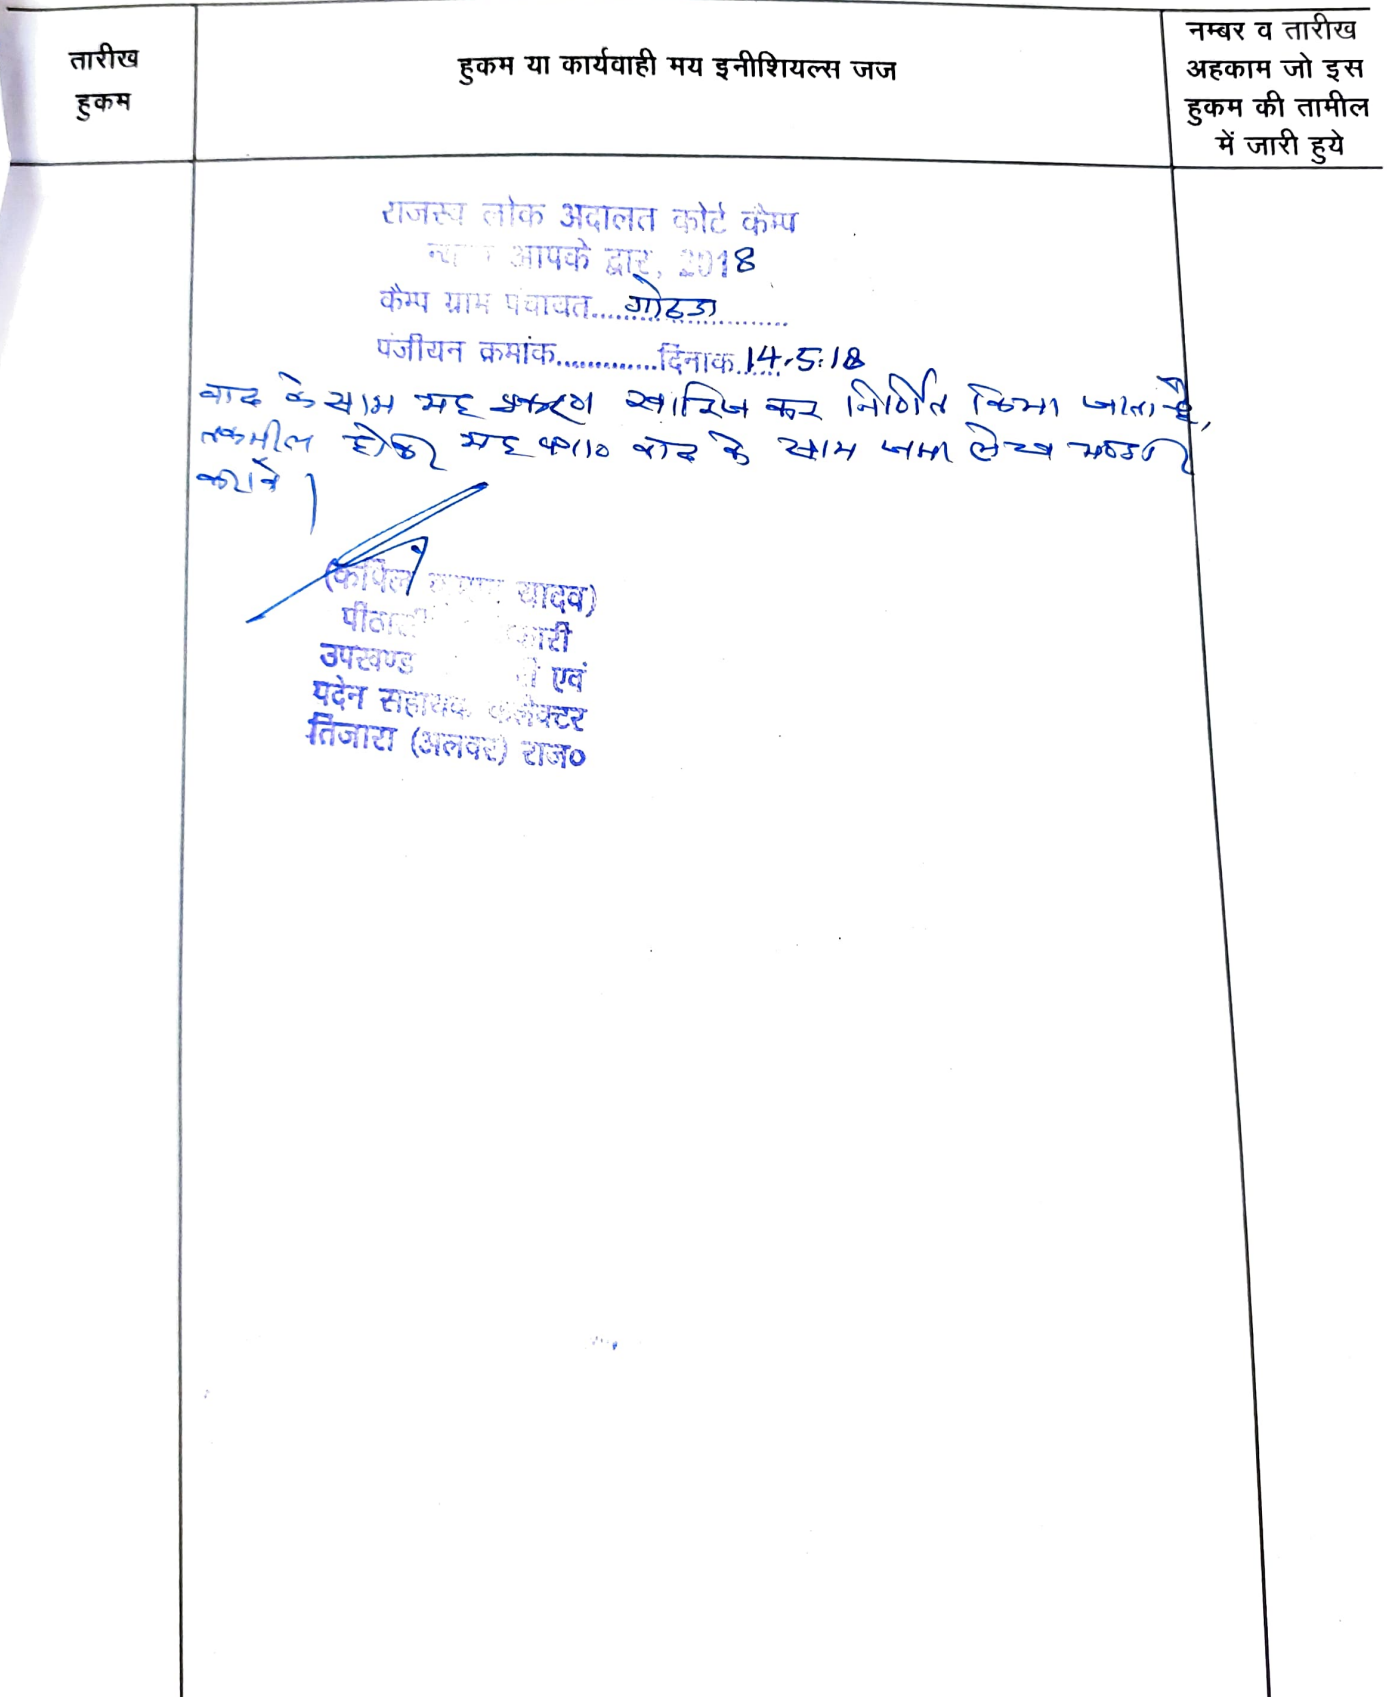 तारीख
हुकम
हुकम या कार्यवाही मय इनीशियल्स जज
नम्बर व तारीख
अहकाम जो इस
हुकम की तामील
में जारी हुये
राजस्व लोक अदालत कोर्ट कैम्प
आपके द्वार, 2018
कैम्प ग्राम पंचायत......गोठडा
पंजीयन क्रमांक.............दिनाक 14.5.18
वाद के साथ यह प्रकरण खारिज कर निर्णित किया जाता है,
तकमील होकर यह वाद के साथ जमा लेख
करावे।
(कपिल यादव)
उपखण्ड एवं
पदेन सहायक कलेक्टर
तिजारा (अलवर) राज०